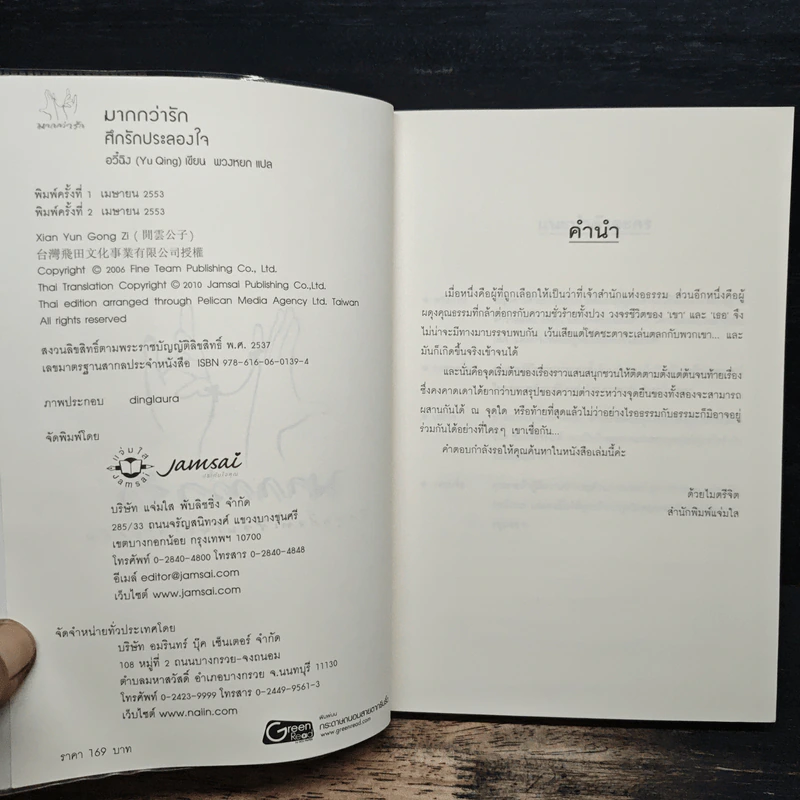 มากกว่ารัก
มากกว่ารัก
ศึกรักประลองใจ
อวี๋ฉิง (Yu Qing) เขียน พวงหยก แปล
พิมพ์ครั้งที่ 1 เมษายน 2553
พิมพ์ครั้งที่ 2 เมษายน 2553
Xian Yun Gong Zi ( 閒雲公子)
台灣飛田文化事業有限公司授權
Copyright © 2006 Fine Team Publishing Co., Ltd.
Thai Translation Copyright © 2010 Jamsai Publishing Co.,Ltd.
Thai edition arranged through Pelican Media Agency Ltd. Taiwan
All rights reserved
สงวนลิขสิทธิ์ตามพระราชบัญญัติลิขสิทธิ์ พ.ศ. 2537
เลขมาตรฐานสากลประจำหนังสือ ISBN 978-616-06-0139-4
ภาพประกอบ dinglaura
จัดพิมพ์โดย
แจ่มใส
Jamsai
Jamsai
บริษัท แจ่มใส พับลิชชิ่ง จำกัด
285/33 ถนนจรัญสนิทวงศ์ แขวงบางขุนศรี
เขตบางกอกน้อย กรุงเทพฯ 10700
โทรศัพท์ 0-2840-4800 โทรสาร 0-2840-4848
อีเมล์ editor@jamsai.com
เว็บไซต์ www.jamsai.com
จัดจำหน่ายทั่วประเทศโดย
บริษัท อมรินทร์ บุ๊ค เซ็นเตอร์ จำกัด
108 หมู่ที่ 2 ถนนบางกรวย-จงถนอม
ตำบลมหาสวัสดิ์ อำเภอบางกรวย จ.นนทบุรี 11130
โทรศัพท์ 0-2423-9999 โทรสาร 0-2449-9561-3
เว็บไซต์ www.naiin.com
Green Read
พิมพ์บน
กระดาษถนอมสายตากรีนรี้ด
www.greenread.com
ราคา 169 บาท
คำนำ
เมื่อหนึ่งคือผู้ที่ถูกเลือกให้เป็นว่าที่เจ้าสำนักแห่งอธรรม ส่วนอีกหนึ่งคือผู้
ผดุงคุณธรรมที่กล้าต่อกรกับความชั่วร้ายทั้งปวง วงจรชีวิตของ 'เขา' และ 'เธอ' จึง
ไม่น่าจะมีทางมาบรรจบพบกัน เว้นเสียแต่โชคชะตาจะเล่นตลกกับพวกเขา... และ
มันก็เกิดขึ้นจริงเข้าจนได้
และนั่นคือจุดเริ่มต้นของเรื่องราวแสนสนุกชวนให้ติดตามตั้งแต่ต้นจนท้ายเรื่อง
ซึ่งคงคาดเดาได้ยากว่าบทสรุปของความต่างระหว่างจุดยืนของทั้งสองจะสามารถ
ผสานกันได้ ณ จุดใด หรือท้ายที่สุดแล้วไม่ว่าอย่างไรอธรรมกับธรรมะก็มิอาจอยู่
ร่วมกันได้อย่างที่ใครๆ เขาเชื่อกัน...
คำตอบกำลังรอให้คุณค้นหาในหนังสือเล่มนี้ค่ะ
ด้วยไมตรีจิต
สำนักพิมพ์แจ่มใส